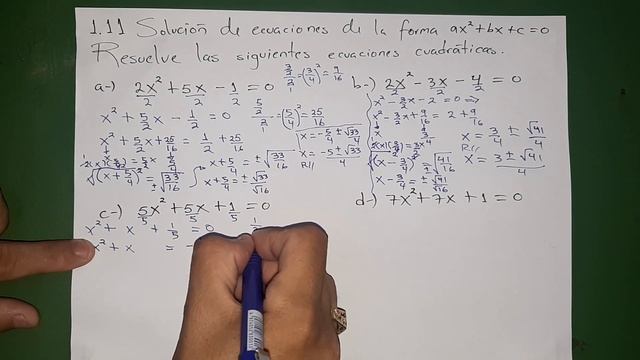 1.11 Solución de ecuaciones de la forma ax²+bx+c=0
Resuelve las siguientes ecuaciones cuadráticas.
a-) 2x²/2 + 5x/2 - 1/2 = 0
x² + 5/2 x - 1/2 = 0
(5/4)² = 25/16
x² + 5/2 x + 25/16 = 1/2 + 25/16
√(x + 5/4)² = ±√33/16
x + 5/4 = ±√33/16
x + 5/4 = ±√33/√16
x = -5/4 ± √33/4
x = -5 ± √33 / 4
R//
(3/4)² = 9/16
b-) 2x²/2 - 3x/2 - 4/2 = 0
x² - 3/2 x - 2 = 0 ⇒
x² - 3/2 x + 9/16 = 2 + 9/16
√(x - 3/4)² = ±√41/16
x - 3/4 = ±√41/√16
x = 3/4 ± √41/4
R//
x = 3 ± √41 / 4
c-) 5x²/5 + 5x/5 + 1/5 = 0
x² + x + 1/5 = 0
x² + x = -
d-) 7x² + 7x + 1 = 0